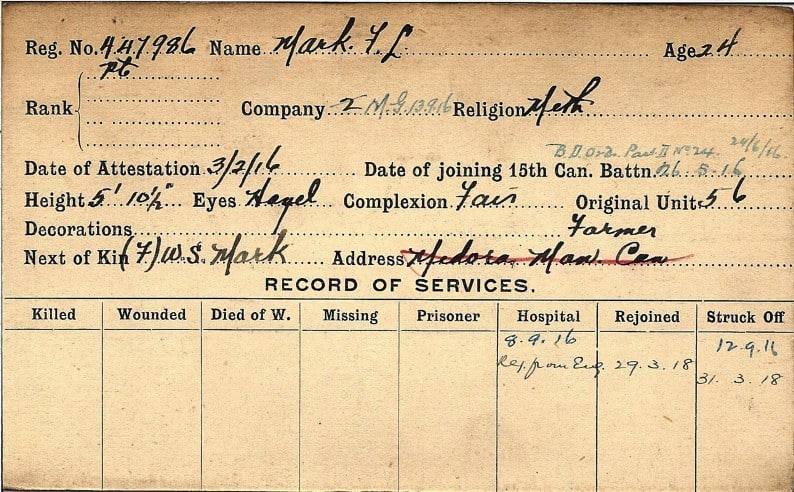 Reg. No. 447986 Name Mark. F. L Age 24
Pt
Rank Company 2 M.G. 13916 Religion Meth
B II Ord. Part II No 24. 24/6/16.
Date of Attestation 3/2/16 Date of joining 15th Can. Battn. 26.5.16
Height 5' 10½" Eyes Hazel Complexion Fair Original Unit 56
Decorations Farmer
Next of Kin (F) W.S. Mark Address Medora. Man. Can
RECORD OF SERVICES.
Killed Wounded Died of W. Missing Prisoner Hospital Rejoined Struck Off
8.9.16 12.9.16
from Eng. 29.3.18 31.3.18